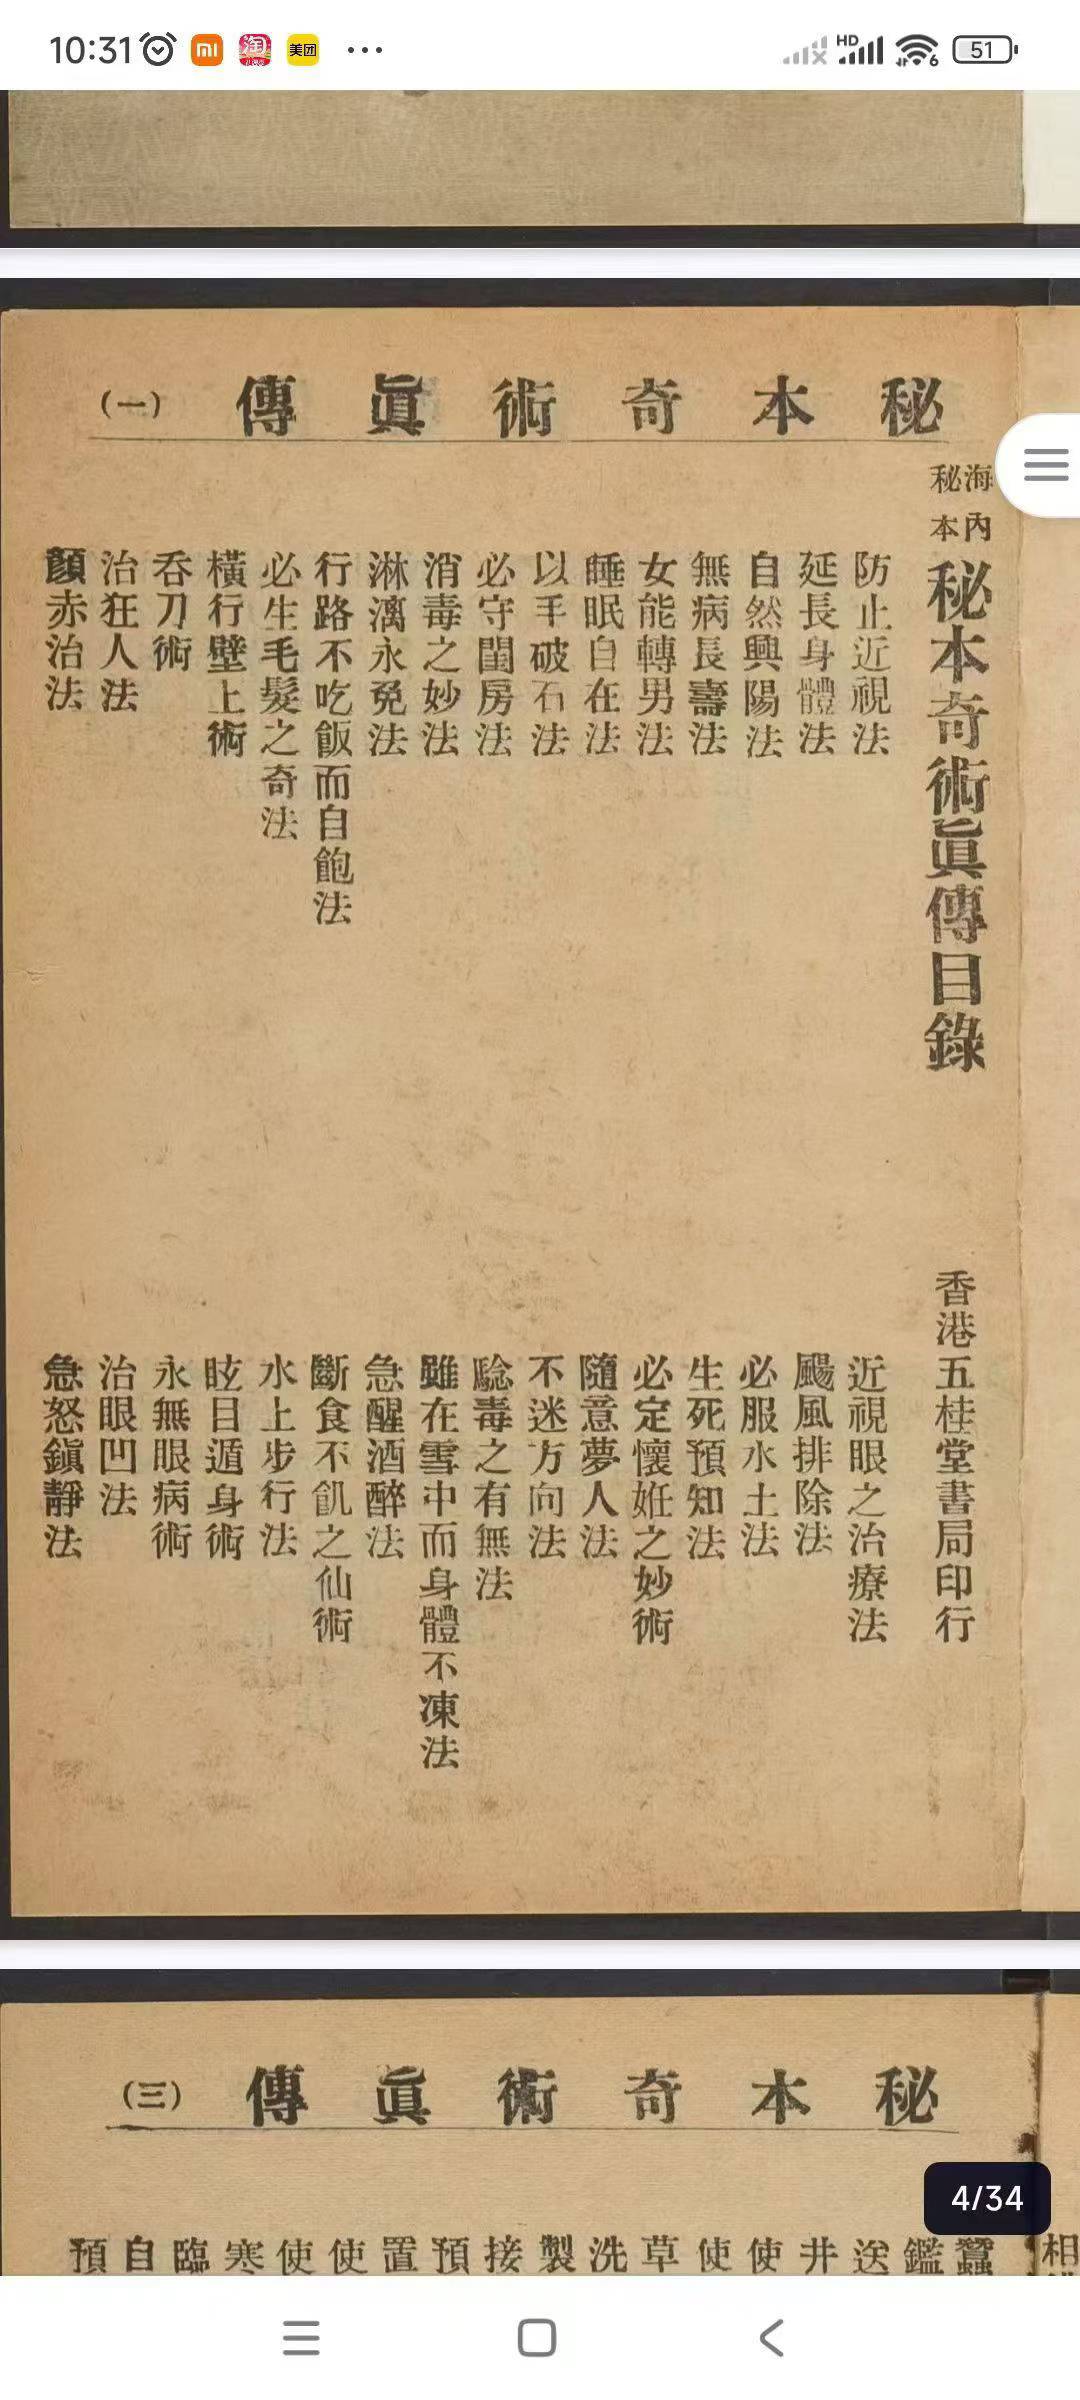 10:31
美团
HD
6
51
秘本奇術眞傳
(一)
海內
秘本
秘本奇術眞傳目錄
香港五桂堂書局印行
防止近視法
近視眼之治療法
延長身體法
颺風排除法
自然興陽法
必服水土法
無病長壽法
生死預知法
女能轉男法
必定懷姙之妙術
睡眠自在法
隨意夢人法
以手破石法
不迷方向法
必守閨房法
驗毒之有無法
消毒之妙法
雖在雪中而身體不凍法
淋漓永免法
急醒酒醉法
行路不吃飯而自飽法
斷食不飢之仙術
必生毛髮之奇法
水上步行法
橫行壁上術
眩目遁身術
吞刀術
永無眼病術
治狂人法
治眼凹法
顏赤治法
急怒鎭靜法
秘本奇術眞傳
(三)
4/34
相
蠶
鑑
送
井
使
使
草
洗
製
接
預
置
使
使
寒
臨
自
預